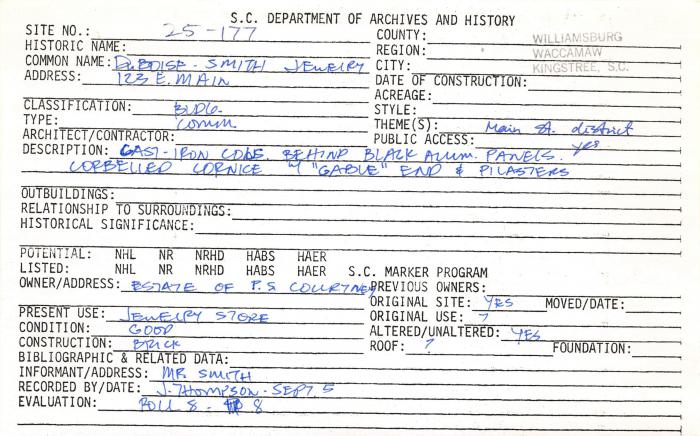 S.C. DEPARTMENT OF ARCHIVES AND HISTORY
SITE NO.: 25-177
COUNTY: WILLIAMSBURG
HISTORIC NAME:
REGION: WACCAMAW
COMMON NAME: DuBOISE-SMITH JEWELRY
CITY: KINGSTREE, S.C.
ADDRESS: 123 E. MAIN
DATE OF CONSTRUCTION:
ACREAGE:
CLASSIFICATION: BLDG.
STYLE:
TYPE: Comm.
THEME(S): Main St. district
ARCHITECT/CONTRACTOR:
PUBLIC ACCESS: yes
DESCRIPTION: CAST-IRON COLS. BEHIND BLACK ALUM. PANELS.
CORBELLED CORNICE W/ "GABLE" END & PILASTERS
OUTBUILDINGS:
RELATIONSHIP TO SURROUNDINGS:
HISTORICAL SIGNIFICANCE:
POTENTIAL: NHL NR NRHD HABS HAER
LISTED: NHL NR NRHD HABS HAER S.C. MARKER PROGRAM
OWNER/ADDRESS: ESTATE OF P.S. COURTNEY
PREVIOUS OWNERS:
ORIGINAL SITE: YES MOVED/DATE:
PRESENT USE: JEWELRY STORE
ORIGINAL USE: ?
CONDITION: GOOD
ALTERED/UNALTERED: YES
CONSTRUCTION: BRICK
ROOF: ? FOUNDATION:
BIBLIOGRAPHIC & RELATED DATA:
INFORMANT/ADDRESS: MR SMITH
RECORDED BY/DATE: J. THOMPSON - SEPT. 5
EVALUATION: ROLL 8 - 8